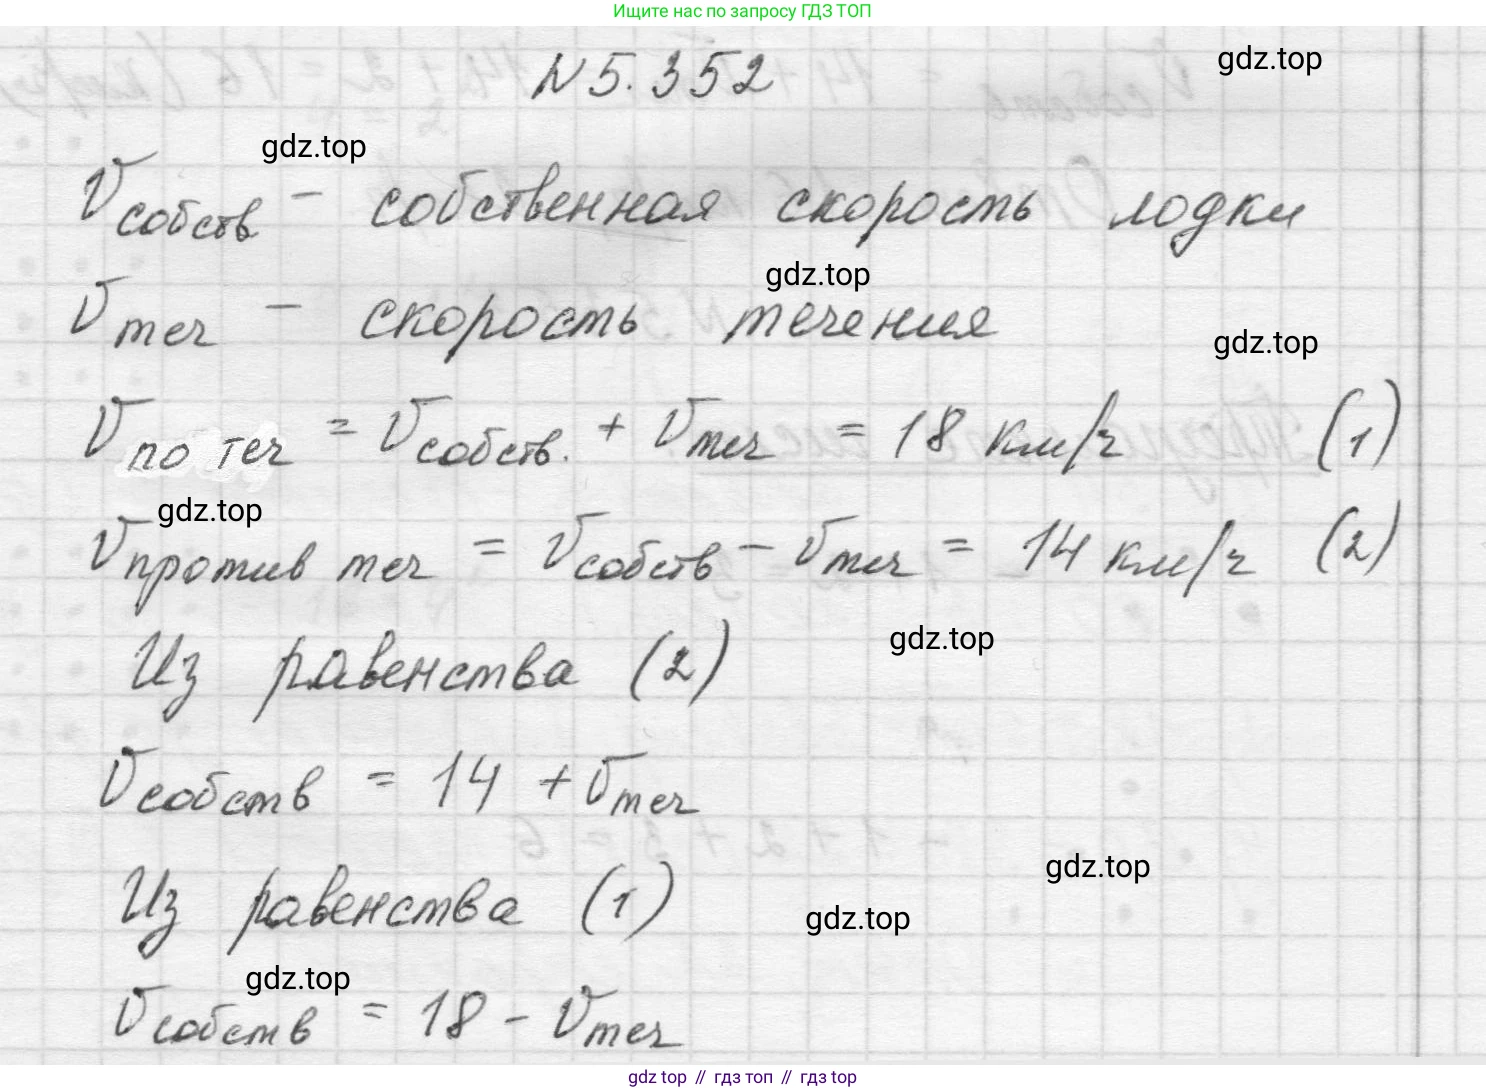 Ищите нас по запросу ГДЗ ТОП
gdz.top
N 5.352
gdz.top
Vсобств – собственная скорость лодки
gdz.top
Vтеч – скорость течения
gdz.top
Vпо теч = Vсобств. + Vтеч = 18 км/ч (1)
gdz.top
Vпротив теч = Vсобств – Vтеч = 14 км/ч (2)
gdz.top
Из равенства (2)
Vсобств = 14 + Vтеч
gdz.top
Из равенства (1)
gdz.top
gdz.top
Vсобств = 18 – Vтеч
gdz.top // гдз топ // гдз.top